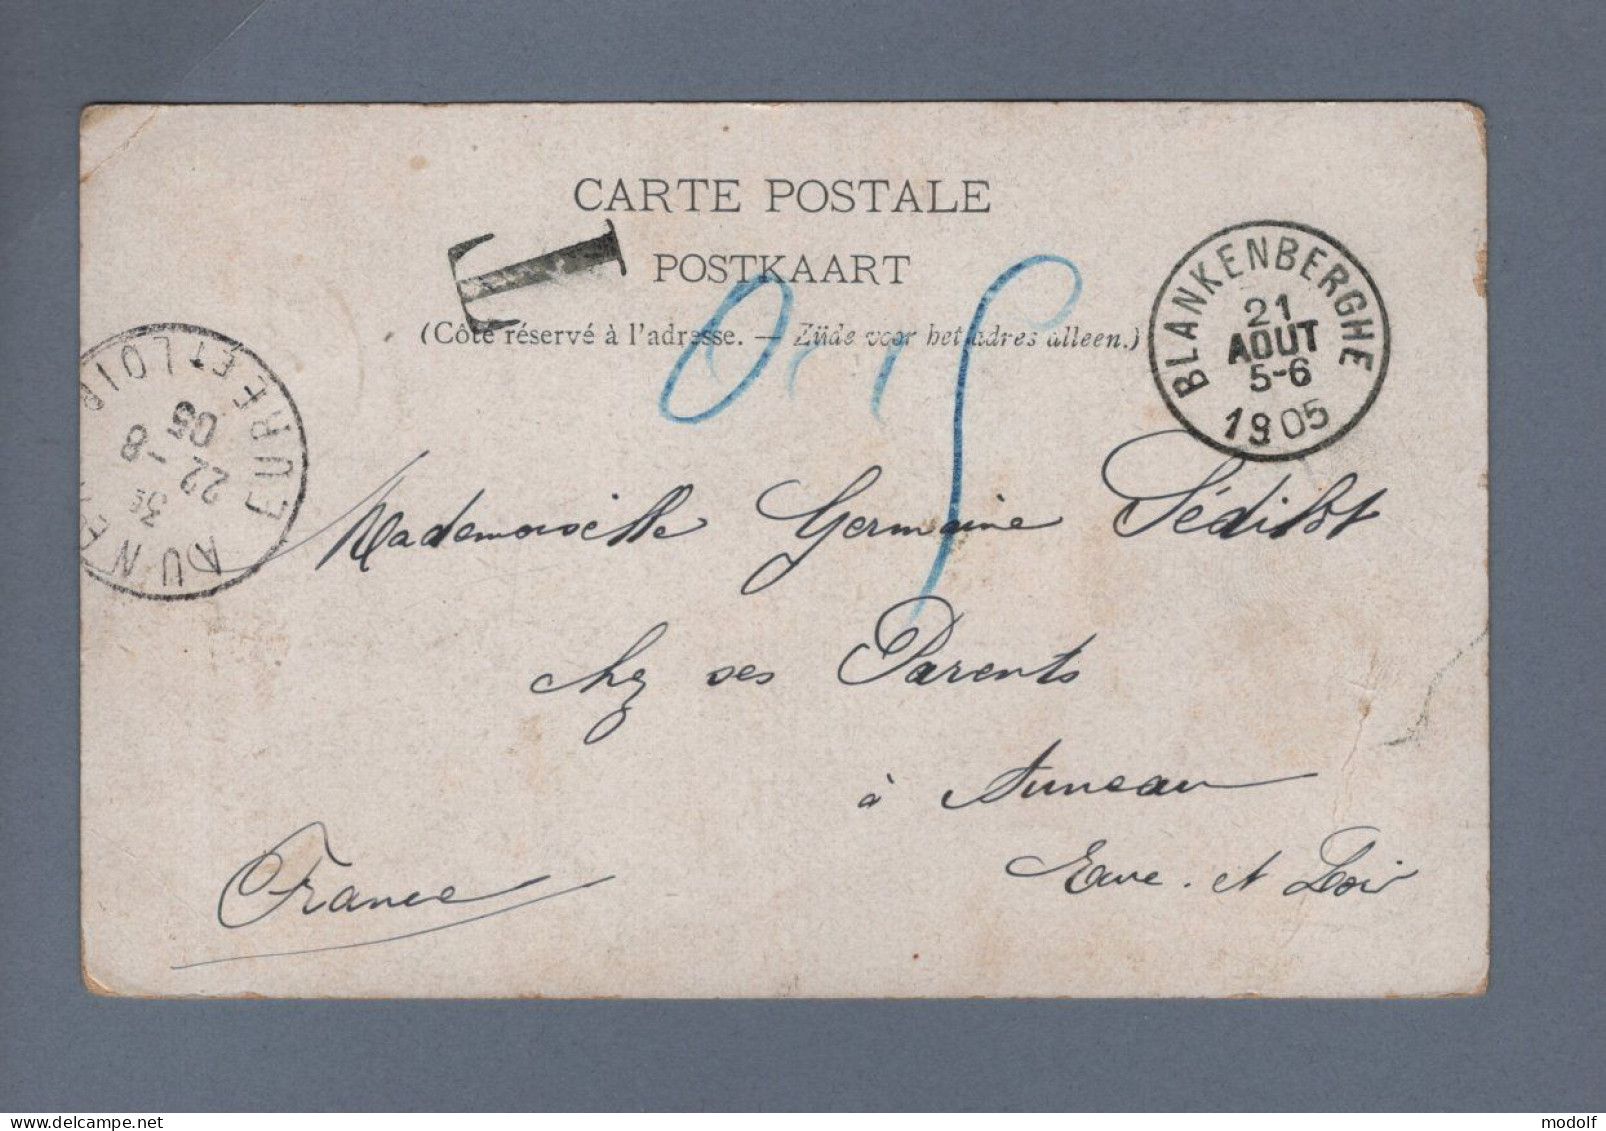 CARTE POSTALE
T
POSTKAART
(Côté réservé à l'adresse. — Zijde voor het adres alleen.)
BLANKENBERGHE
21
AOUT
5-6
1905
AUNEAU
EURE ET LOIR
3E
22 -8
05
Mademoiselle Germaine Sédillot
chez ses Parents
à Auneau
Eure. et Loir
France
modolf